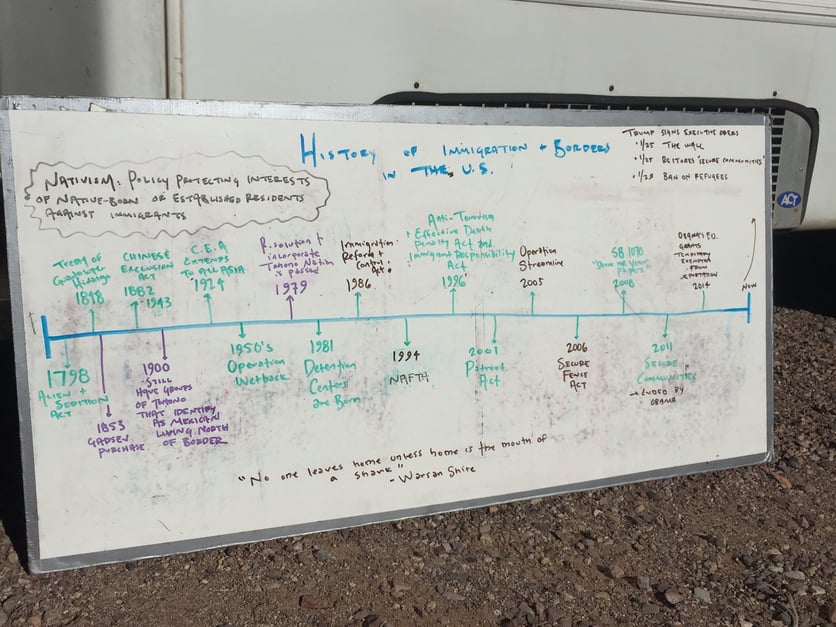 HISTORY OF IMMIGRATION + BORDERS
IN THE U.S.
TRUMP SIGNS EXECUTIVE ORDERS
• 1/25 THE WALL
• 1/25 RESTORES "SECURE COMMUNITIES"
• 1/29 BAN ON REFUGEES
NATIVISM: POLICY PROTECTING INTERESTS
OF NATIVE-BORN OR ESTABLISHED RESIDENTS
AGAINST IMMIGRANTS
ACT
TREATY OF
Hidalgo
CHINESE
EXCLUSION
ACT
1882
1943
C.E.A
EXTENDS
TO ALL ASIA
1924
Resolution to
incorporate
Tohono Nation
is passed
1979
Immigration
Reform +
Control
Act
1986
Anti-Terrorism
Effective Death
Penalty Act and
Immigrant Responsibility
Act
1996
Operation
Streamline
2005
SB 1070
"Show me your
papers"
2008
OBAMA'S E.O.
GRANTS
TEMPORARY
FROM
2014
NOW
1798
ALIEN +
SEDITION
ACT
1853
GADSEN
PURCHASE
1900
- STILL
HAVE GROUPS
OF TOHONO
THAT IDENTIFY
AS MEXICAN
LIVING NORTH
OF BORDER
1950's
Operation
Wetback
1981
Detention
Centers
are Born
1994
NAFTA
2001
Patriot
Act
2006
SECURE
FENCE
ACT
2011
SECURE
COMMUNITIES
→ ENDED BY
OBAMA
"No one leaves home unless home is the mouth of
a shark"
- Warsan Shire